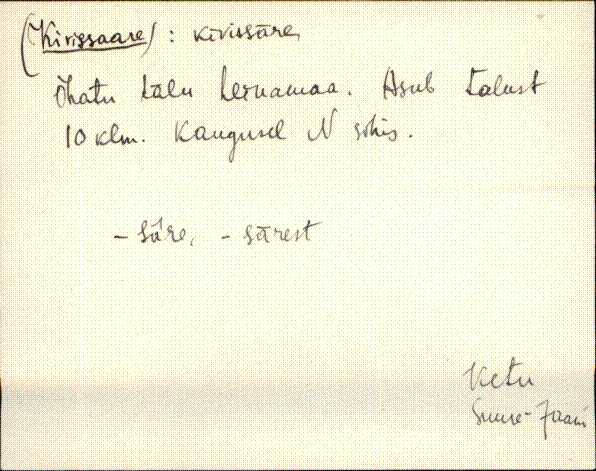 (Kirissaare) : kivissāre,
Õhatu talu heinamaa. Asub talust
10 klm. Kaugusel N sihis.
- sāre, - sārest
Vetu
Suure-Jaani